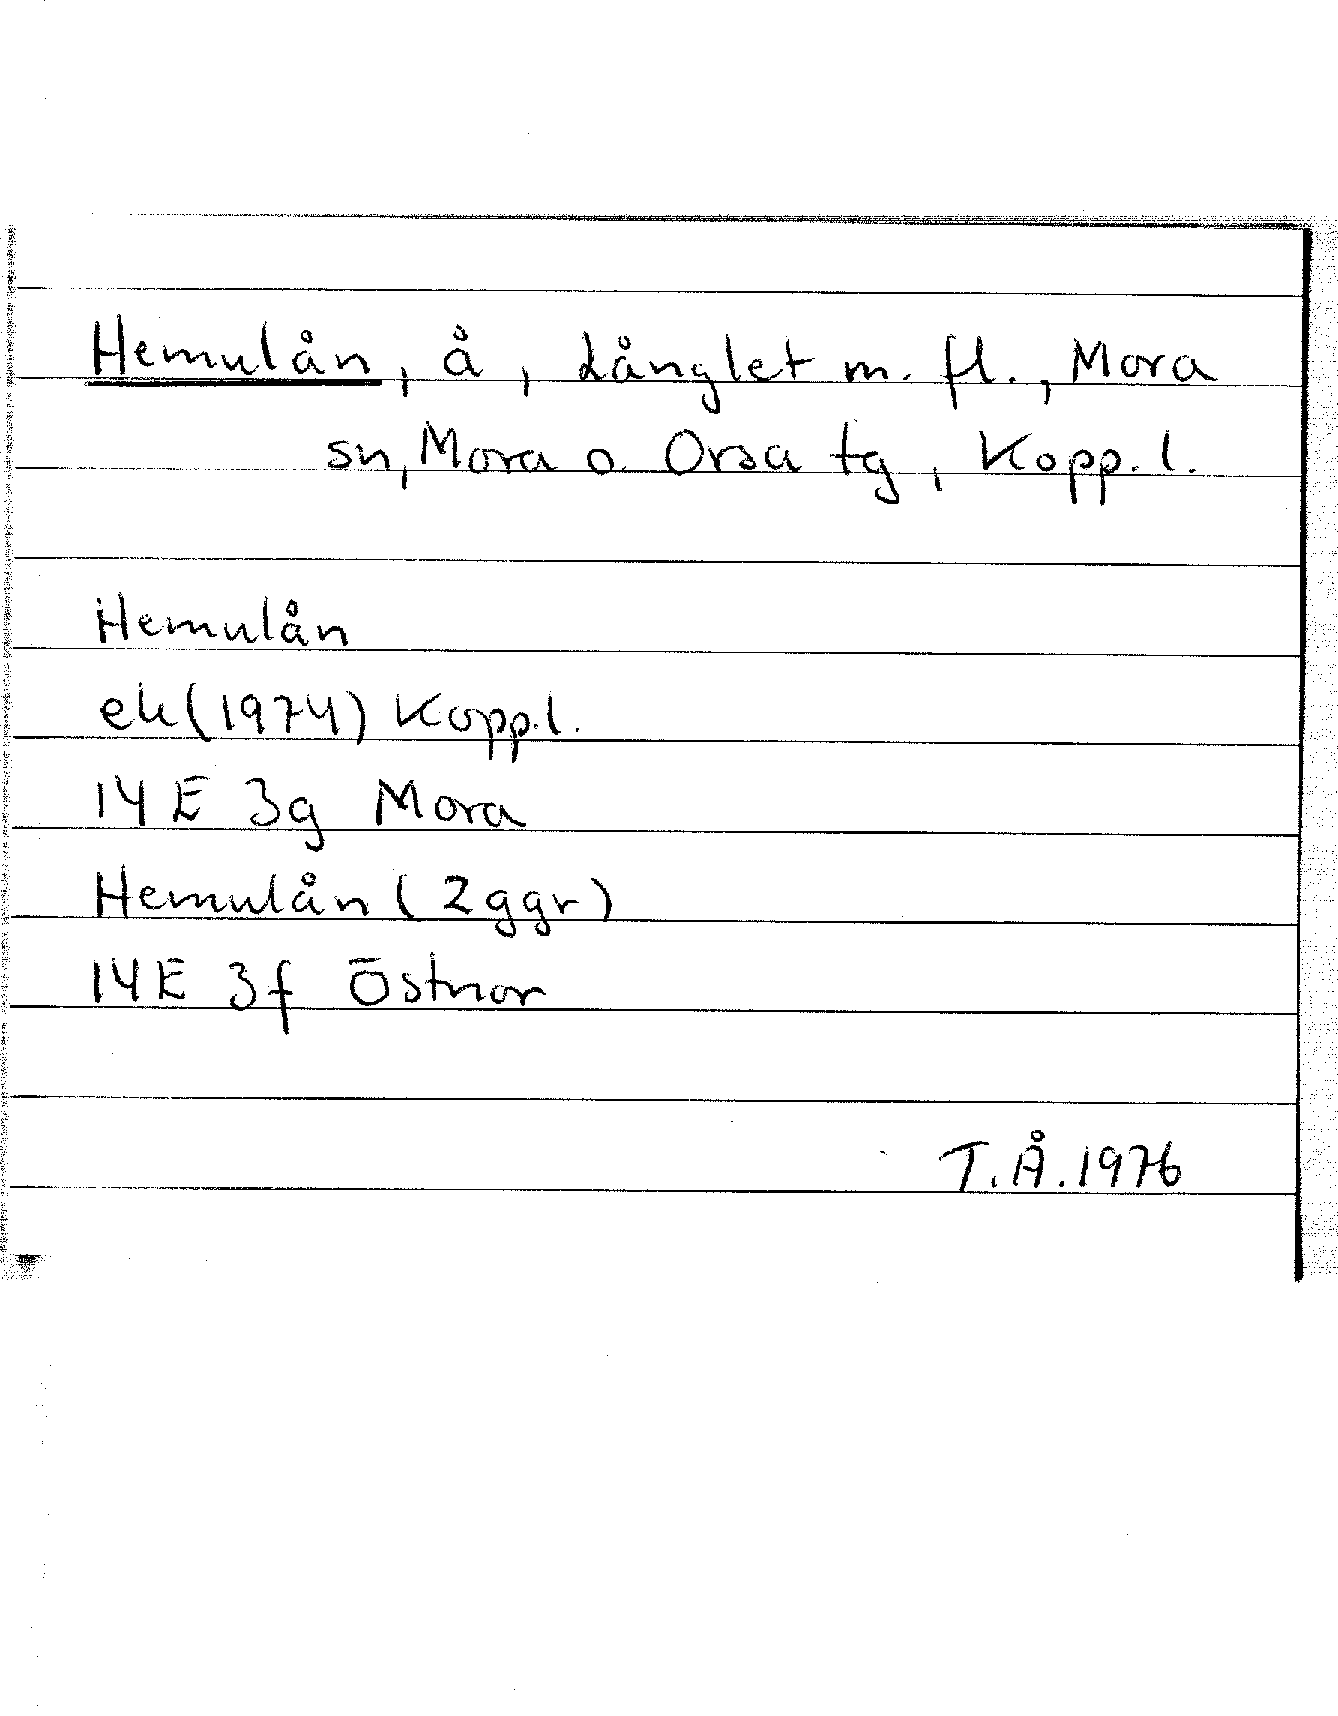 Hemulån, å, Långlet m. fl., Mora
sn, Mora o. Orsa tg, Kopp. l.
Hemulån
ek (1974) Kopp.l.
14 E 3g Mora
Hemulån (2ggr)
14E 3f Östnor
T.Å.1976